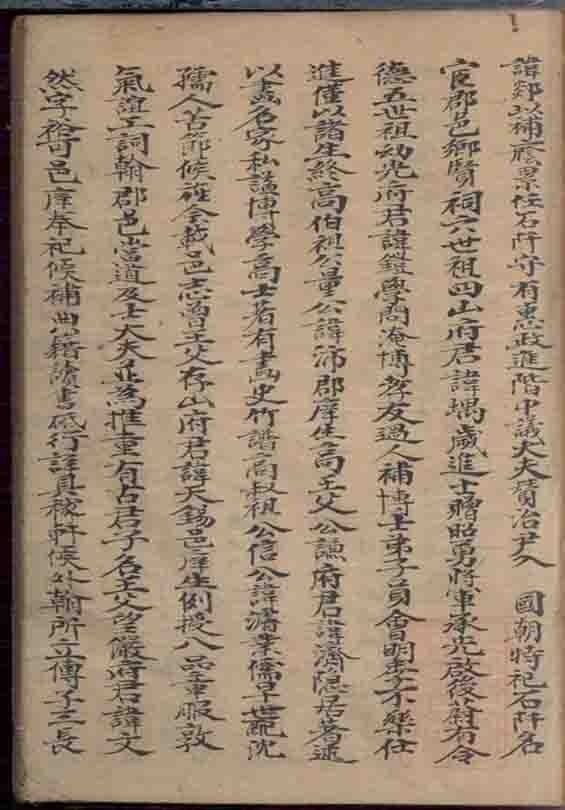 諱郯以補蔭累任石阡守有惠政進階中議大夫贊治尹入 國朝特祀石阡名
宦郡邑鄉賢祠六世祖四山府君諱堣歲進士贈昭勇將軍承先啟後蔚有令
德五世祖幼光府君諱鎧學問淹博孝友過人補博士弟子員會明季不樂任
進僅以諸生終高伯祖公量公諱沛郡庠生高王父公謙府君諱濟隱居著述
以畫名家私謚博學高士著有畫史竹譜高叔祖公信公諱濬業儒早世配沈
孺人苦節候旌今載邑志曾王父存山府君諱天錫邑庠生例授八品章服敦
氣誼工詞翰郡邑當道及士大夫並為推重有古君子名王父望儼府君諱文
然字 可邑庠奉祀候補典籍讀書砥行詳具 軒侯外翰所立傳子三長